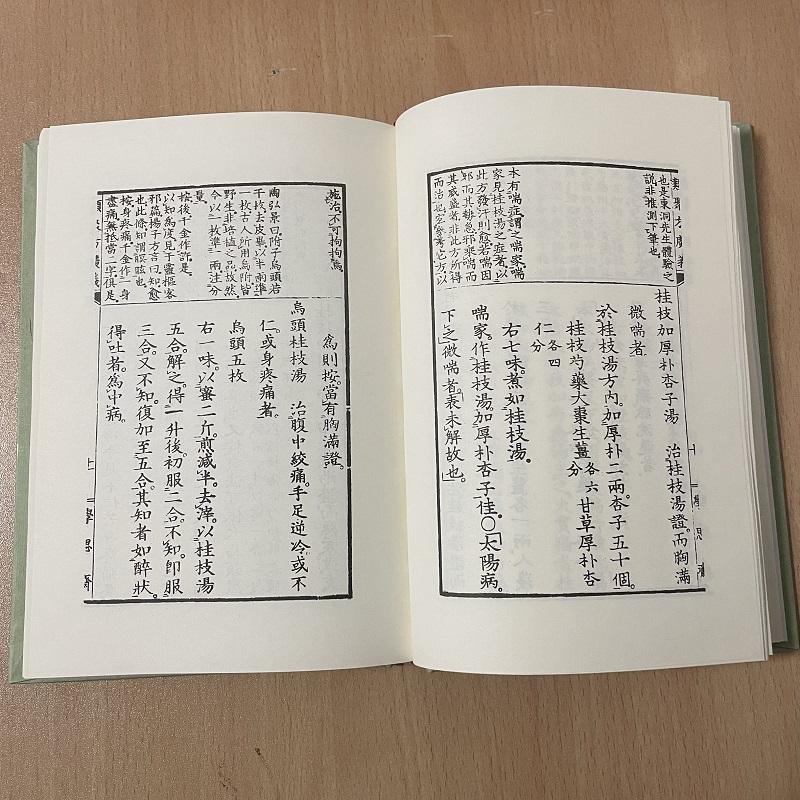 類聚方廣義
也是東洞先生體驗之
說非推測下筆也
本有喘症謂之喘家喘
家見桂枝湯之症者以
此方發汗則愈若喘因
邪而其勢急邪乘喘而
其威盛者非此方所得
而治也宜參考它方以
桂枝加厚朴杏子湯　治桂枝湯證。而胸滿
微喘者。
於桂枝湯方內。加厚朴二兩杏子五十個。
桂枝芍藥大棗生薑各六分甘草厚朴杏
仁各四分
右七味。煮如桂枝湯。
喘家。作桂枝湯。加厚朴杏子佳。○「太陽病。
下之微喘者。「表未解故也。」
十
學思齋
施治不可拘拘焉
陶弘景曰附子烏頭若
干枚去皮畢以半兩準
一枚古人所用烏附皆
野生非培植之品故然
今以一枚準一兩注分
量
按後千金作許是
以知為度見于靈樞客
邪篇揚子方言曰知愈
也此條知謂瞑眩也
按身疼痛千金作一身
盡痛無抵當二字俱是
為則按。當有胸滿證。
烏頭桂枝湯　治腹中絞痛。手足逆冷。或不
仁。或身疼痛者。
烏頭五枚
右一味。以蜜二斤。煎減半。去滓。以桂枝湯
五合解之。得一升後。初服二合。不知。卽服
三合。又不知。復加至五合。其知者如醉狀。
得吐者。為中病。
類聚方廣義
十一
學思齋